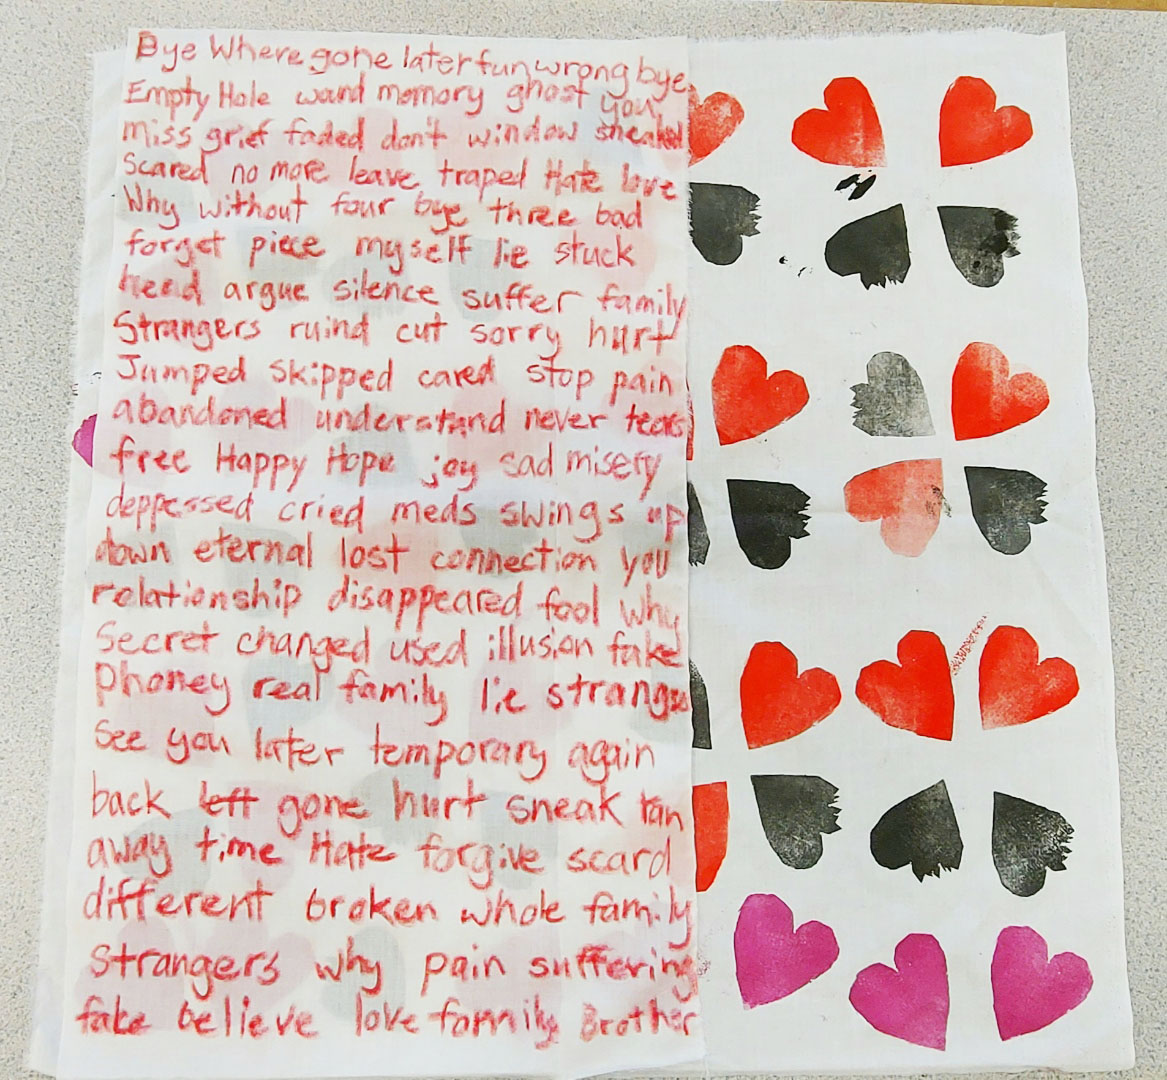 Bye Where gone later fun wrong bye
Empty Hole wand memory ghost you
miss grief faded don't window sneaked
Scared no more leave traped Hate love
Why without four bye three bad
forget piece myself lie stuck
head argue silence suffer family
Strangers ruind cut sorry hurt
Jumped skipped cared stop pain
abandoned understand never tears
free Happy Hope joy sad misery
deppessed cried meds swings up
down eternal lost connection you
relationship disappeared fool why
Secret changed used illusion fake
Phoney real family lie strangs
See you later temporary again
back left gone hurt sneak ran
away time Hate forgive scard
different broken whole family
Strangers why pain suffering
fake believe love family Brother